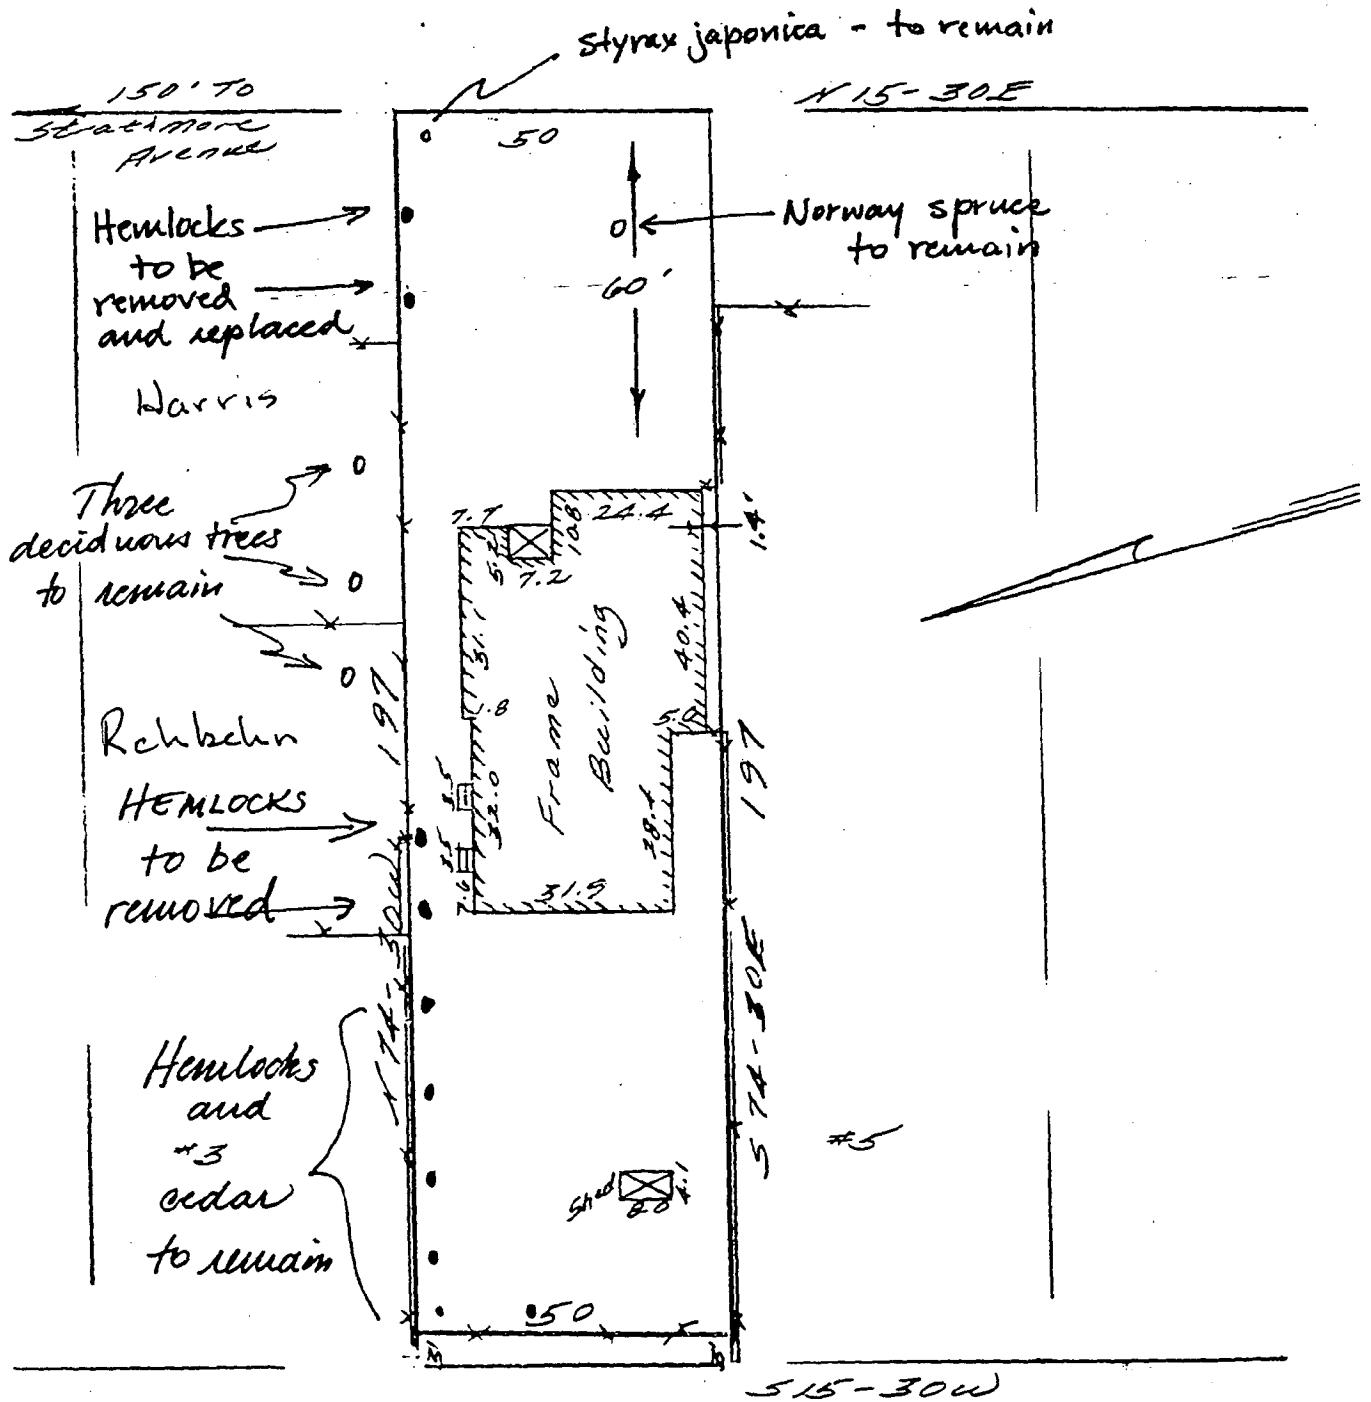 styrax japonica - to remain
150' To
Strathmore
Avenue
N 15-30E
50
Hemlocks
to be
removed
and replaced
Norway spruce
to remain
60'
Harris
Three
deciduous trees
to remain
7.7
5.2
7.2
10.8
24.4
1.4'
31.7
40.4
Frame
Building
1.8
5.0
197
197
Rehbehn
HEMLOCKS
to be
removed
3.5
3.5
32.0
28.4
7.6
31.9
N 74-30W
S 74-30E
Hemlocks
and
#3
cedar
to remain
Shed
8.0
4.1
#5
50
3'
S 15-30W